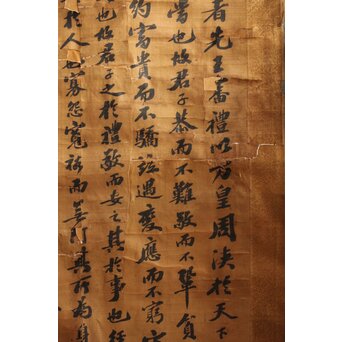 者先王審禮以方皇周浹於天下
當也故君子恭而不難敬而不鞏貧
約富貴而不驕並遇變應而不窮
也故君子之於禮敬而安之其於事也徑
於人也寡怨寬裕而無阿其所為身